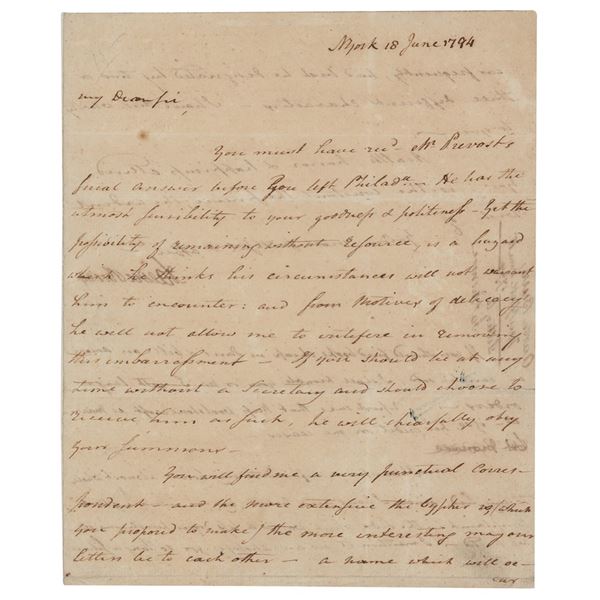 NYork 18 June 1794
my Dear sir,
You must have recd. Mr Prevost's
final answer before you left Philada. He has the
utmost sensibility to your goodness & politeness - Yet the
possibility of remaining without resource, is a hazard
which he thinks his circumstances will not warrant
him to encounter: and from motives of delicacy
he will not allow me to intefere in removing
this embarrassment - If you should be at any
time without a Secretary and should choose to
receive him as such, he will chearfully obey
your summons -
You will find me a very punctual Corres-
pondent - and the more extensive the Cypher is (which
you proposed to make) the more interesting may our
letters be to each other - a name which will oc-
cur